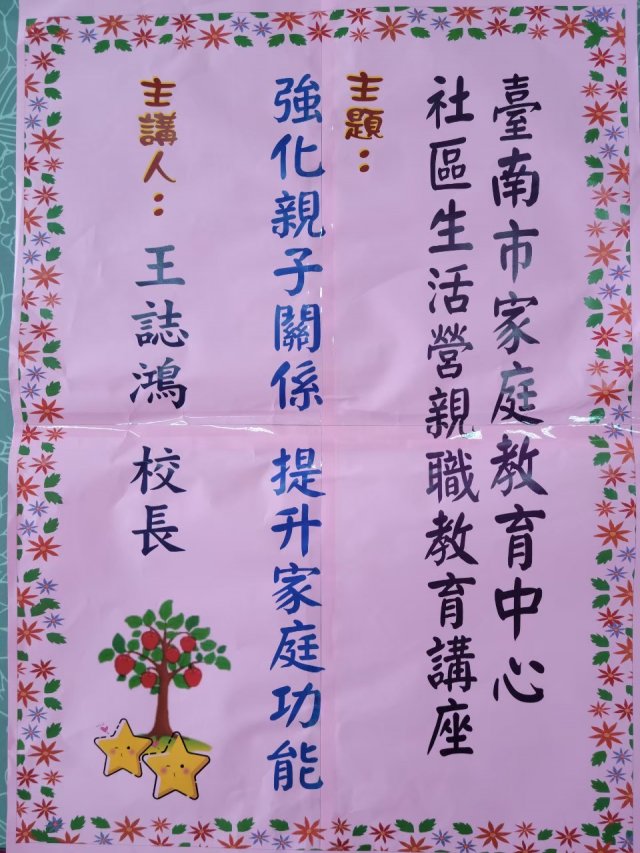 臺南市家庭教育中心
社區生活營親職教育講座
主題：
強化親子關係 提升家庭功能
主講人：王誌鴻 校長